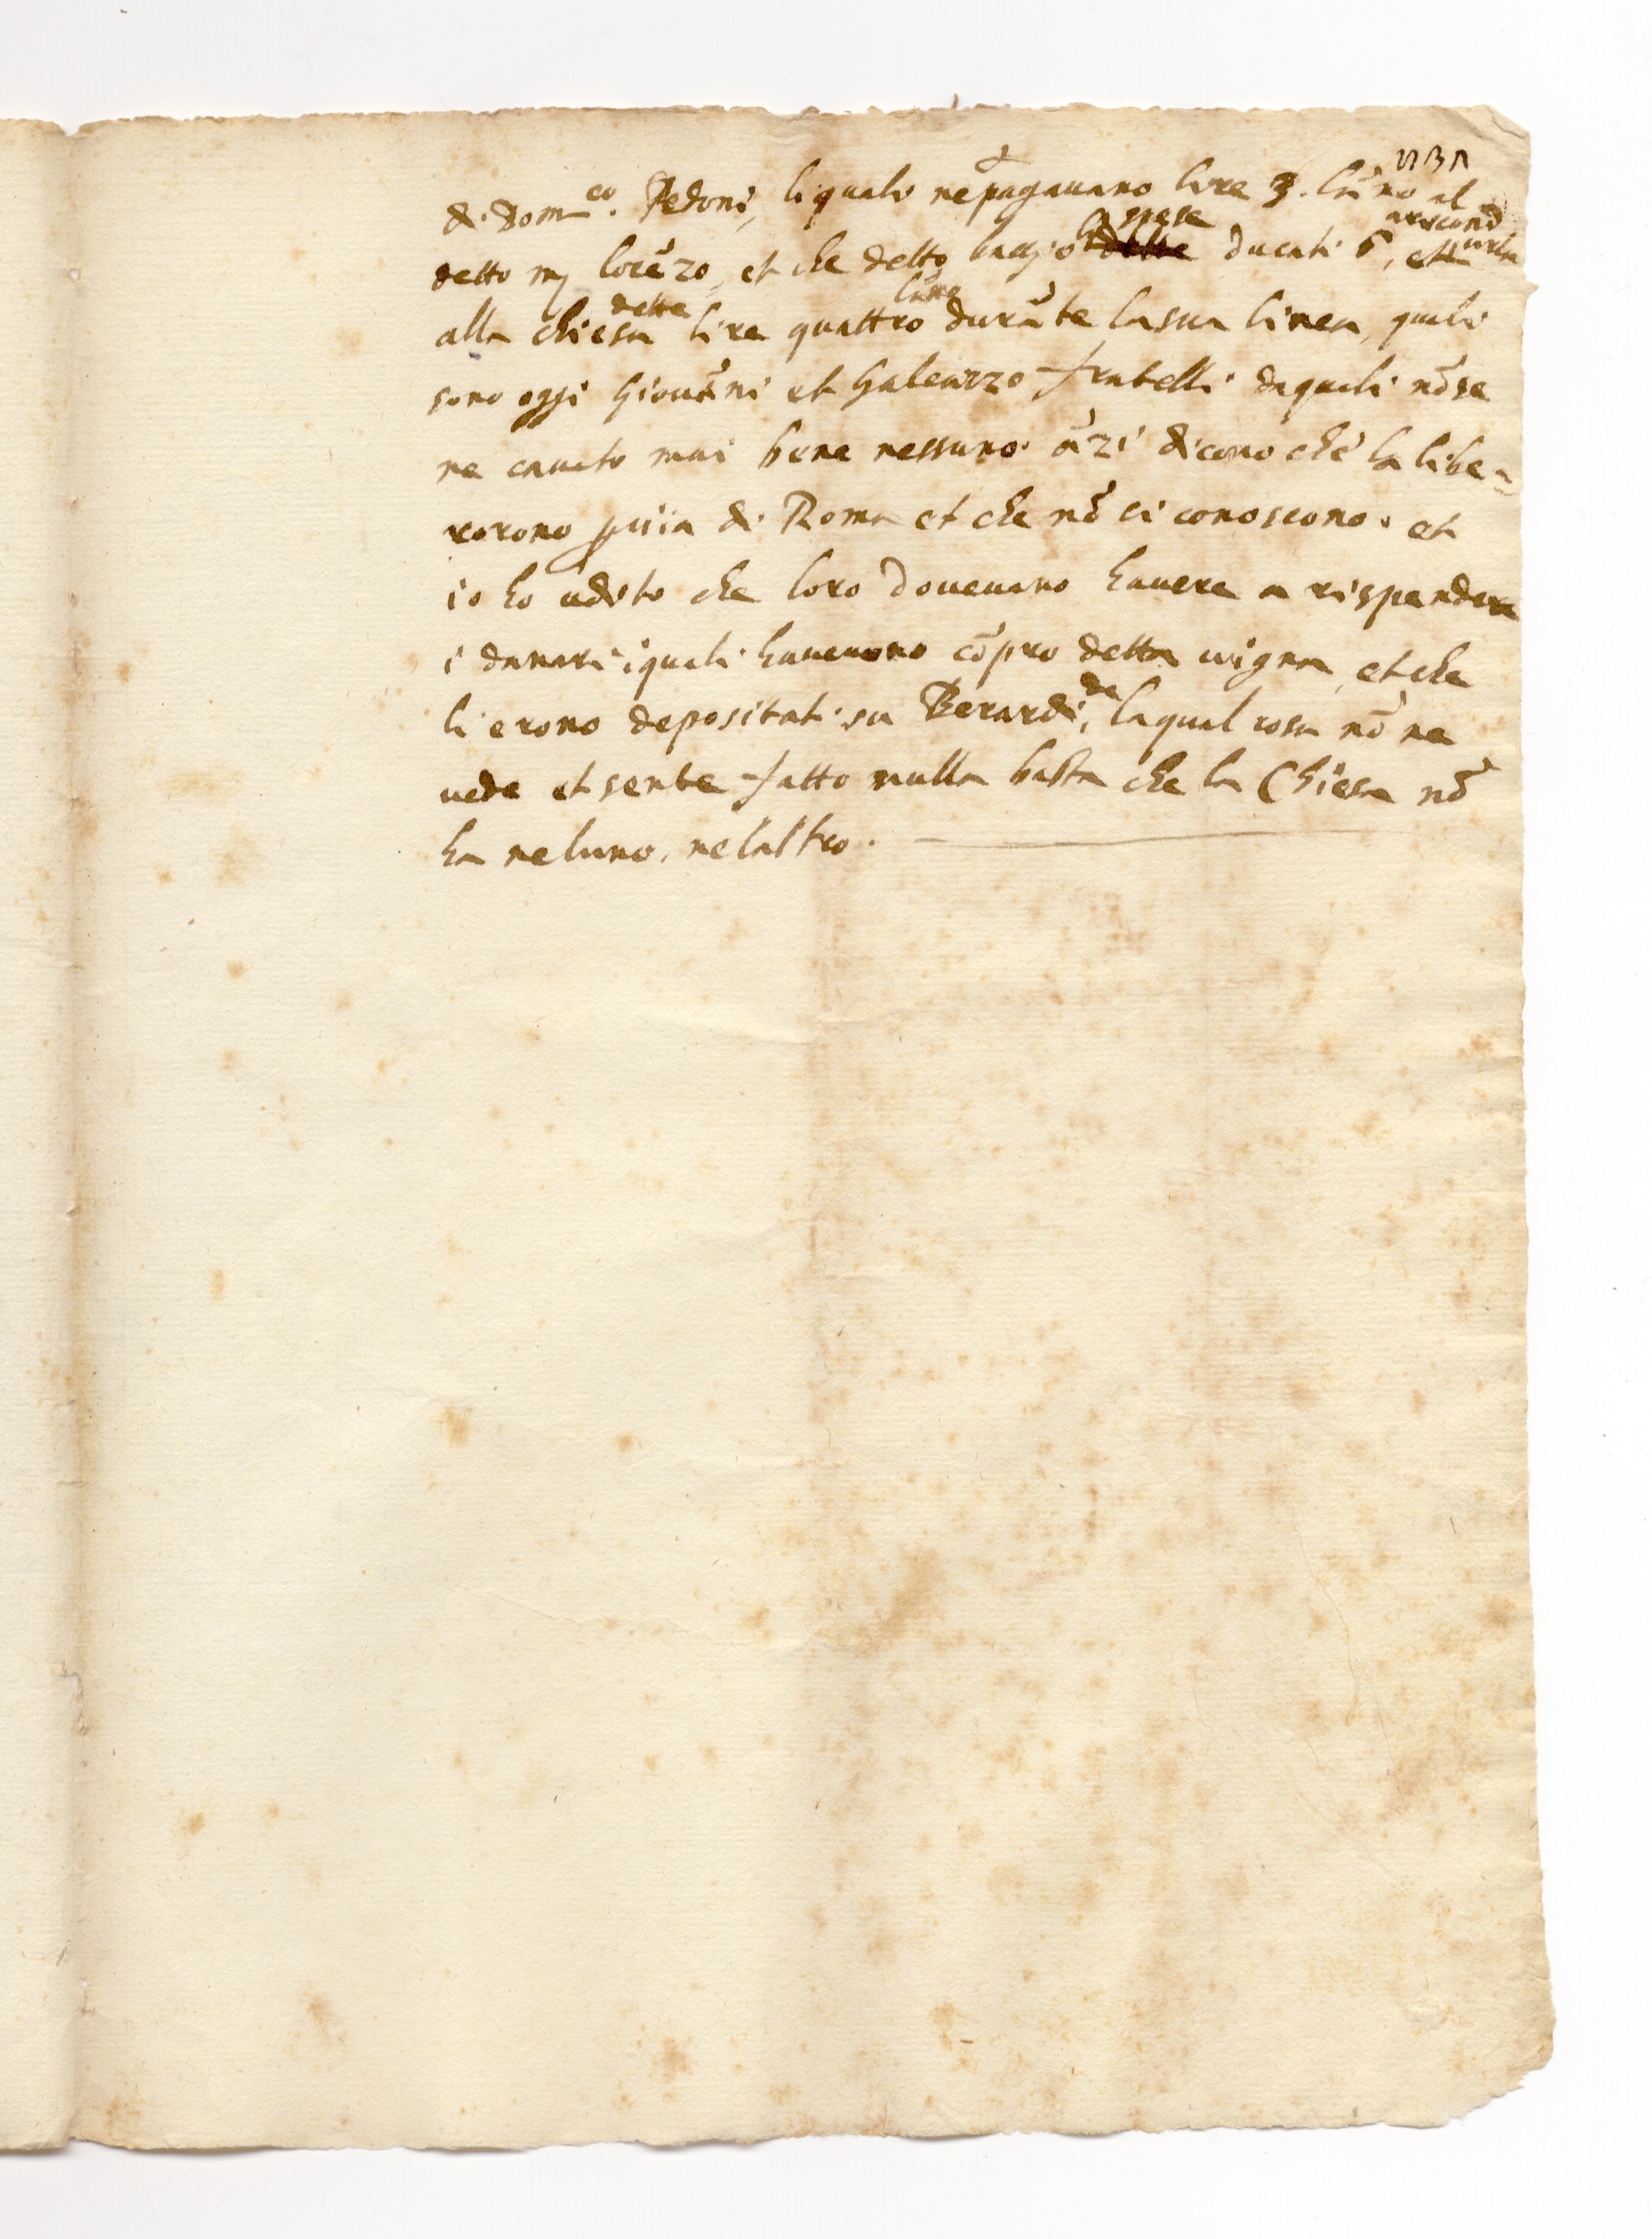 di Dom.co Pedoni, li quali ne pagavano lire 3. l'ãno al
detto mͥ Lorẽzo, et che detto baccio la spese ducati 6, et
alla chiesa dette lire quattro l'ãno durãte la sua linea, quali
sono oggi Giovãni et Galeazzo fratelli da quali nõ se
ne cavato mai bene nessuno. ãzi dicono che la libe-
rorono p uia di Roma et che nõ ci conoscono. et
io ho udito che loro dovevano havere a rispendere
i danari i quali havevono cõpro detta uigna, et che
li erono depositati su Berardi, de la qual cosa nõ ne
uede et sente fatto nulla basta che la Chiesa nõ
ha ne luno, ne laltro.